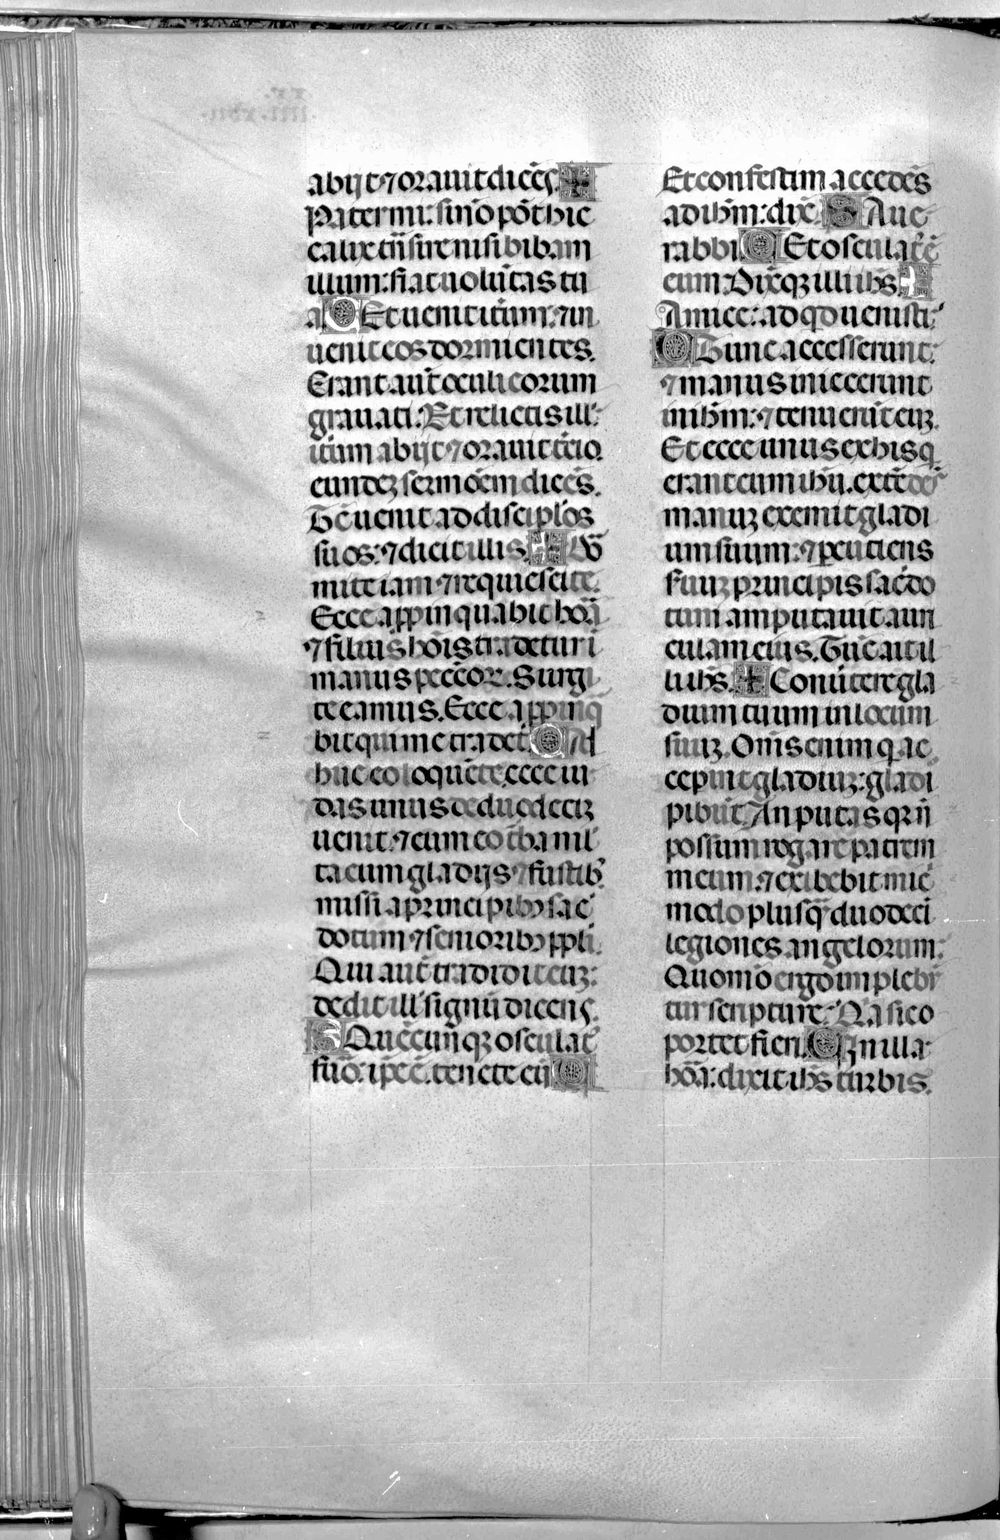 abijt ⁊ orauit dicēs. ✠
Pater mi: si nō pōt hic
calix trāsire nisi bibam
illum: fiat uolūtas tu
a C Et uenit itūm: ⁊ in
uenit eos dormientes.
Erant aut̄ oculi eorum
grauati. Et relictis ill'
itūm abijt ⁊ orauit t̄cio
eundeꝫ sermōem dicēs.
Tc̄ uenit ad discip̄los
suos: ⁊ dicit illis. ✠ Dor
mite iam ⁊ requiescite.
Ecce appinquabit hōa
⁊ filius hōis tradetur i
manus pecc̄oꝝ. Surgi
te eamus. Ecce appinq̄
bit qui me tradet. C Ad
huc eo loquēte, ecce iu
das unus de duodeciꝫ
uenit: ⁊ cum eo t̄ba mul
ta cum gladijs ⁊ fustibꝰ
missi a principibꝫ sac̄
dotum ⁊ senioribꝫ ppli.
Qui aut̄ tradidit euꝫ:
dedit ill' signū dicens.
S Quēcūqꝫ osculat'
fuō: ip̄e ē. tenete eū C
Et confestim accedēs
ad ihm̄: dix̄. S Aue
rabbi C Et osculat' ē
eum. Dix̄qꝫ illi ihs̄. ✠
Amice: ad qd̄ uenisti?
C Tunc accesserunt:
⁊ manus iniecerunt
in ihm̄: ⁊ tenuerūt euꝫ.
Et ecce unus ex his q̄
erant cum ihū. extēdēs
manuꝫ exemit gladi
um suum: ⁊ ꝑcutiens
seruꝫ principis sac̄do
tum amputauit auri
culam eius. Tūc ait il
li ihs̄. ✠ Conūtere gla
dium tuum in locum
suuꝫ. Om̄s enim q̄ ac
cepint gladiuꝫ: gladi
o pibūt. An putas qꝛ nō
possum rogare patrem
meum: ⁊ exibebit mic'
modo plusq̄ duodecī
legiones angelorum:
Quomō ergo implebū
tur scripture: Q̄a sic o
portet fieri. C In illa
hōa: dixit ihs̄ turbis.